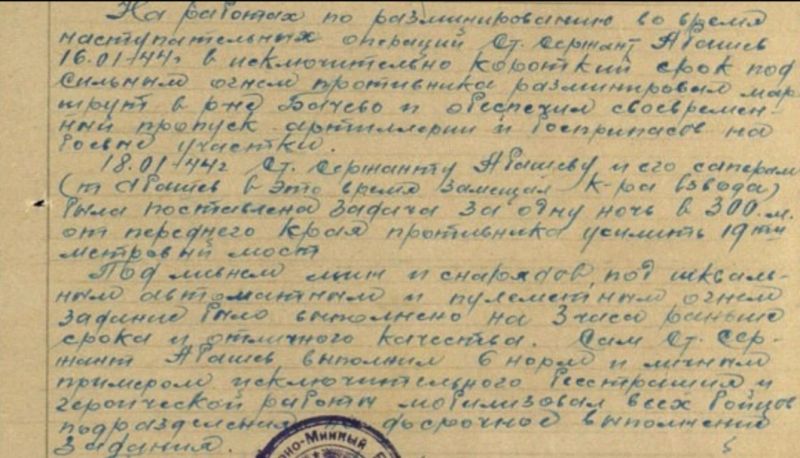 На работах по разминированию во время
наступательных операций Ст. Сержант Абашев
16.01-44г в исключительно короткий срок под
сильным огнем противника разминировал мар
шрут в р-не Бачево и обеспечил своевремен-
ный пропуск артиллерии и боеприпасов на
боевые участки.
18.01-44г Ст. Сержанту Абашеву и его саперам
(т Абашев в это время замещал К-ра взвода)
была поставлена задача за одну ночь в 300.м.
от переднего края противника усилить 19ти
метровый мост
Под ливнем мин и снарядов, под шкваль-
ным автоматным и пулеметным огнем
задание было выполнено на 3 часа раньше
срока и отличного качества. Сам Ст. Сер-
жант Абашев выполнил 6 норм и личным
примером исключительного бесстрашия и
героической работы мобилизовал всех бойцов
подразделения на досрочное выполнение
задания.
но-Минный